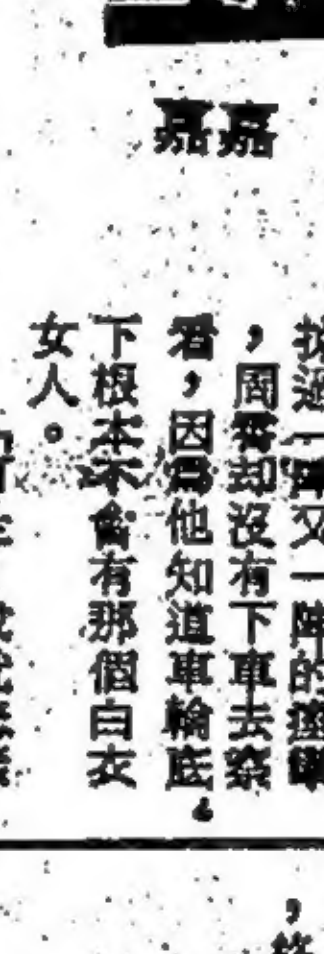 嘉嘉
過一陣又一陣的
，周却沒有下車去察
看，因爲他知道車輪底
下根本不會有那個白衣
女人。